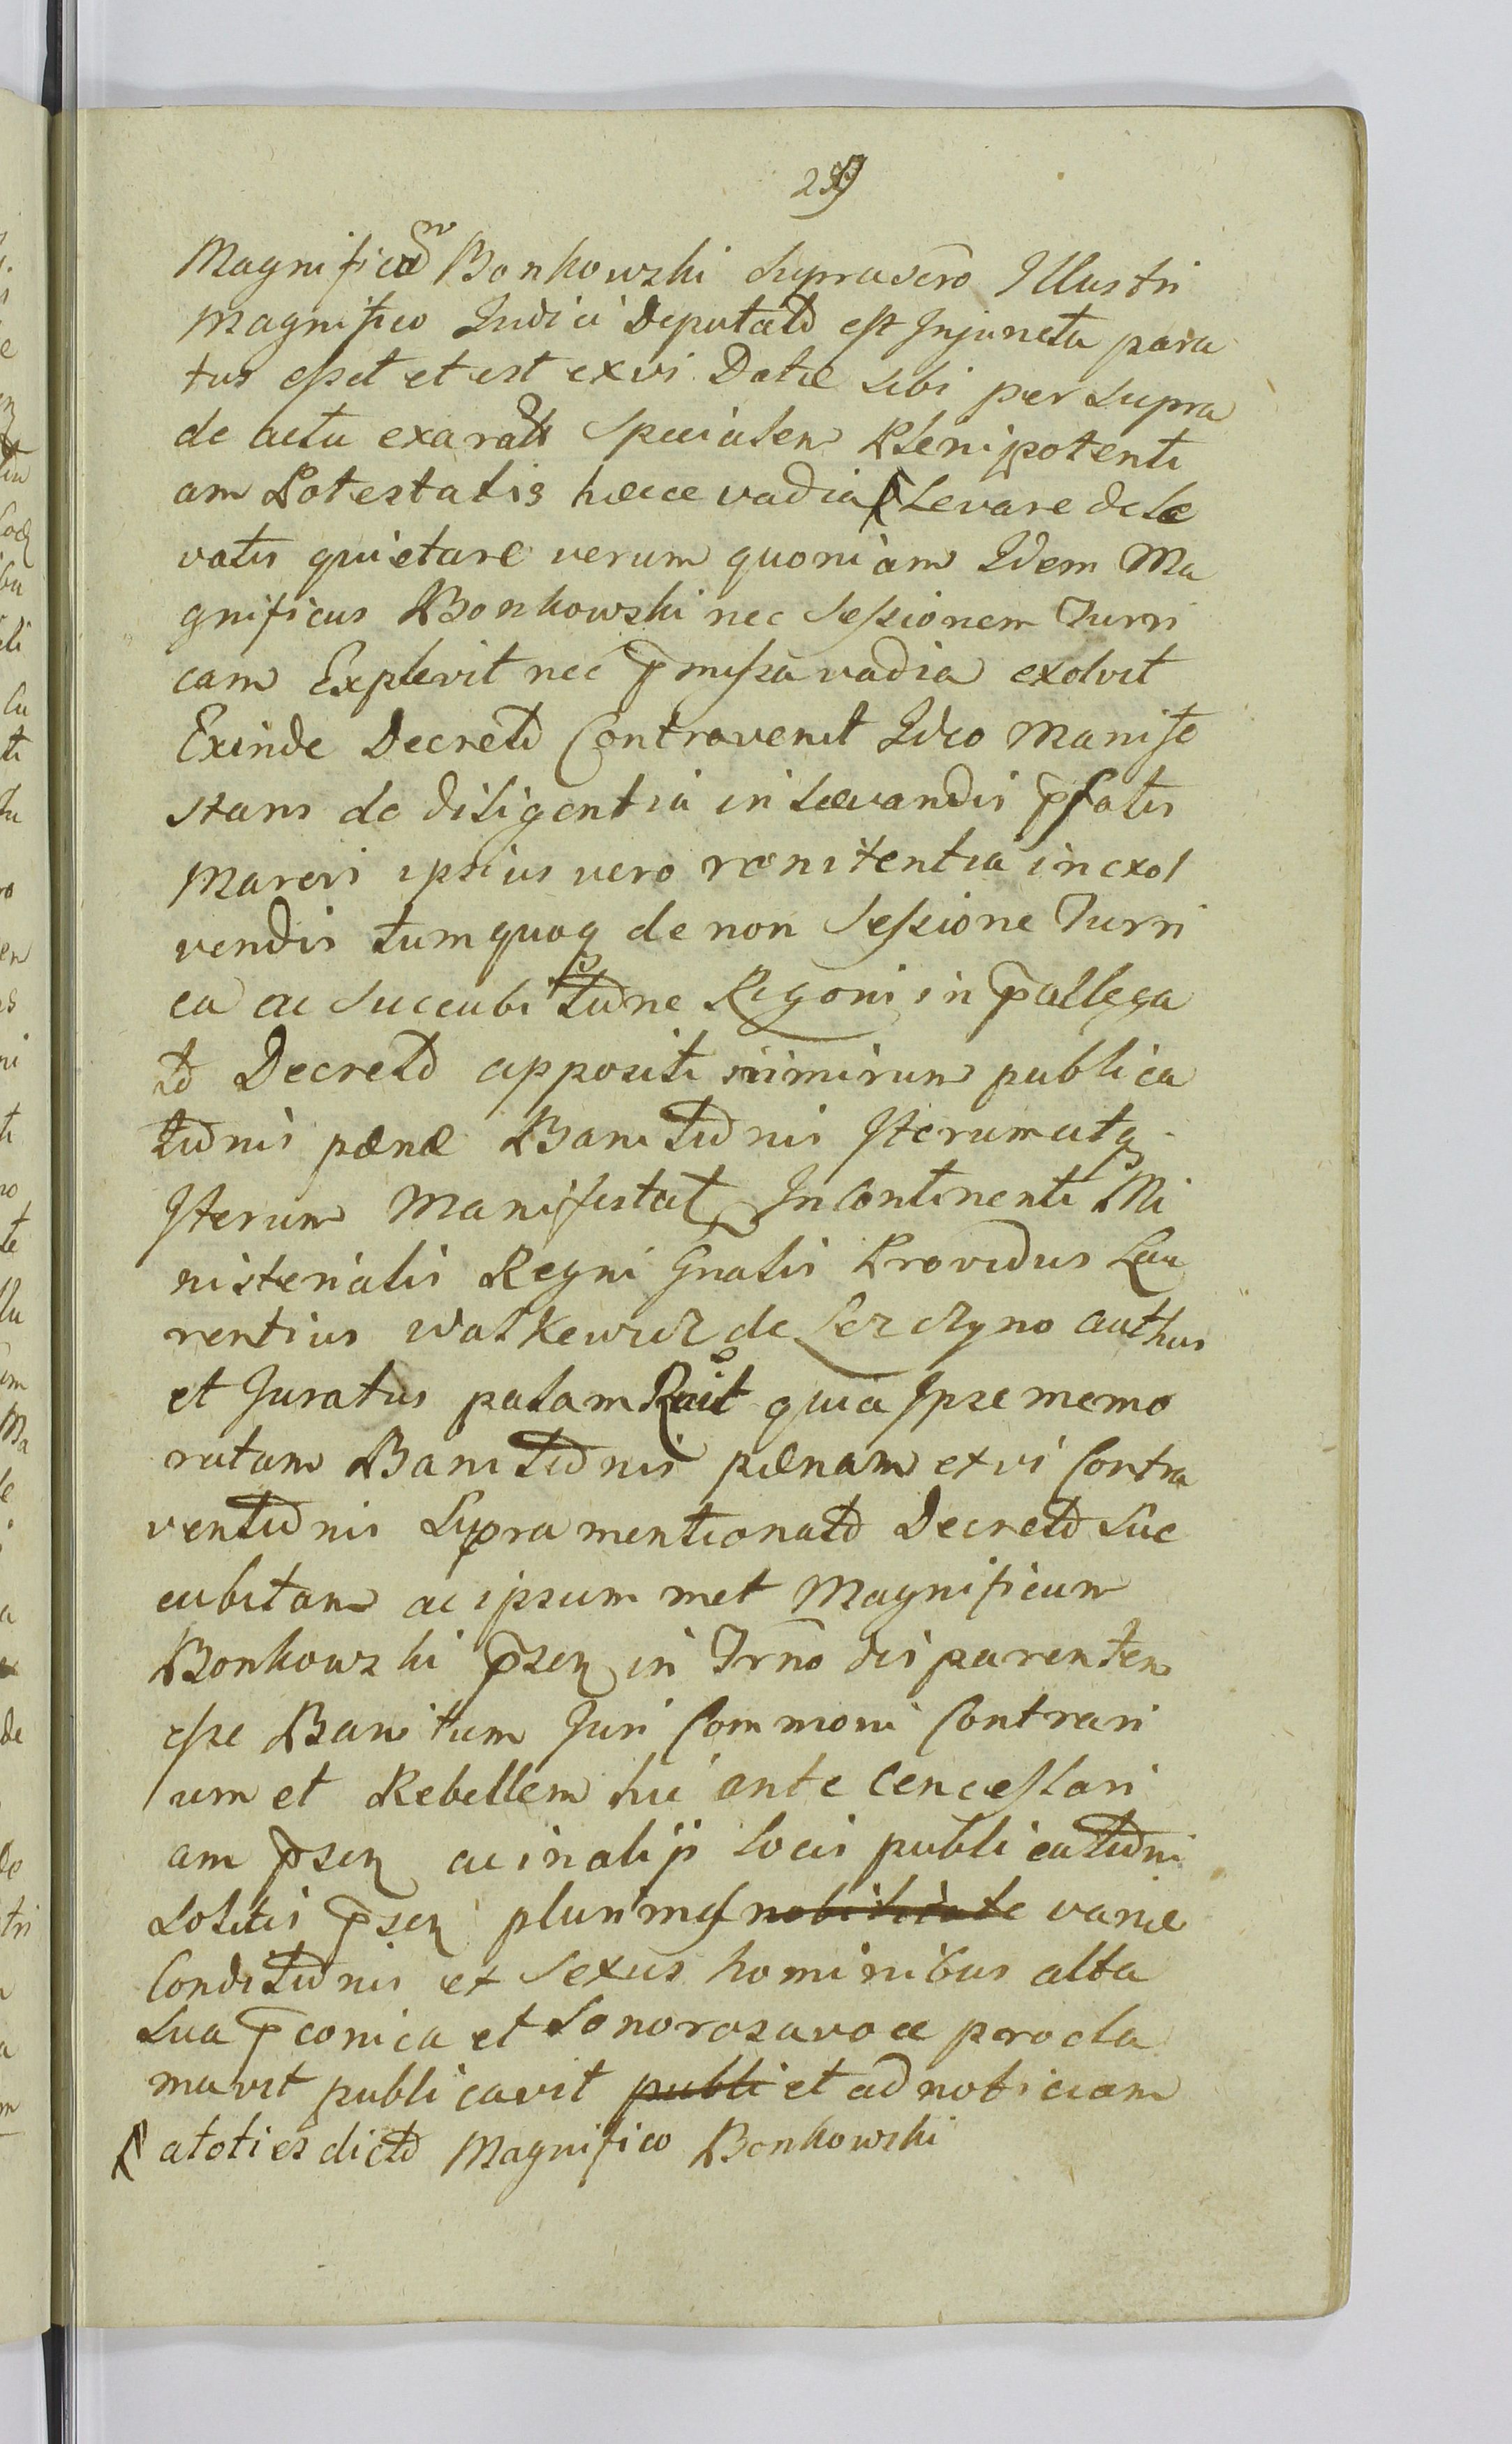 Magnificum Bonkowski suprascro Illustri
Magnifico Judici Deputato est Injuncta para
tus esset et est ex vi Datæ sibi per supra
de actu exarat specialem Plenipotenti
am Potestatis hæcce vadia Levare de le
vatis quietare verum quoniam Idem Ma
gnificus Bonkowski nec sessionem Turri
cam Explevit nec p̄missa vadia exolvit
Exinde Decreto Contravenit Ideo Manife
stans de diligentia in lævandis p̄fatis
Mareri ipsius vero renitentia in exol
vendis tum quoq de non sessione Turri
ca ac succubitione Regoni in p̄allega
to Decreto appositi nimirum publica
tionis pænæ Banitionis Iterum atq
Iterum Manifestat Incontinenti Mi
nisterialis Regni Gnalis Providus Lau
rentius Walkewicz de Lezczyno authus
et Juratus palam Rcit quia Ipse memo
ratam Banitionis pænam ex vi Contra
ventionis Supra mentionato Decreto suc
cubitam ac ipsum met Magnificum
Bonkowski p̄sen in Trno disparentem
esse Banitum Juri Commoni Contrari
um et Rebellem hic ante Cencellari
am p̄sen ac in alijs locis publicationi
solitis p̄sen plurimis nobilitate variæ
Conditionis et sexus hominibus alta
sua p̄conica et Sonorosa voce procla
mavit publicavit publi et ad noticiam
atoties dicto Magnifico Bonkowski